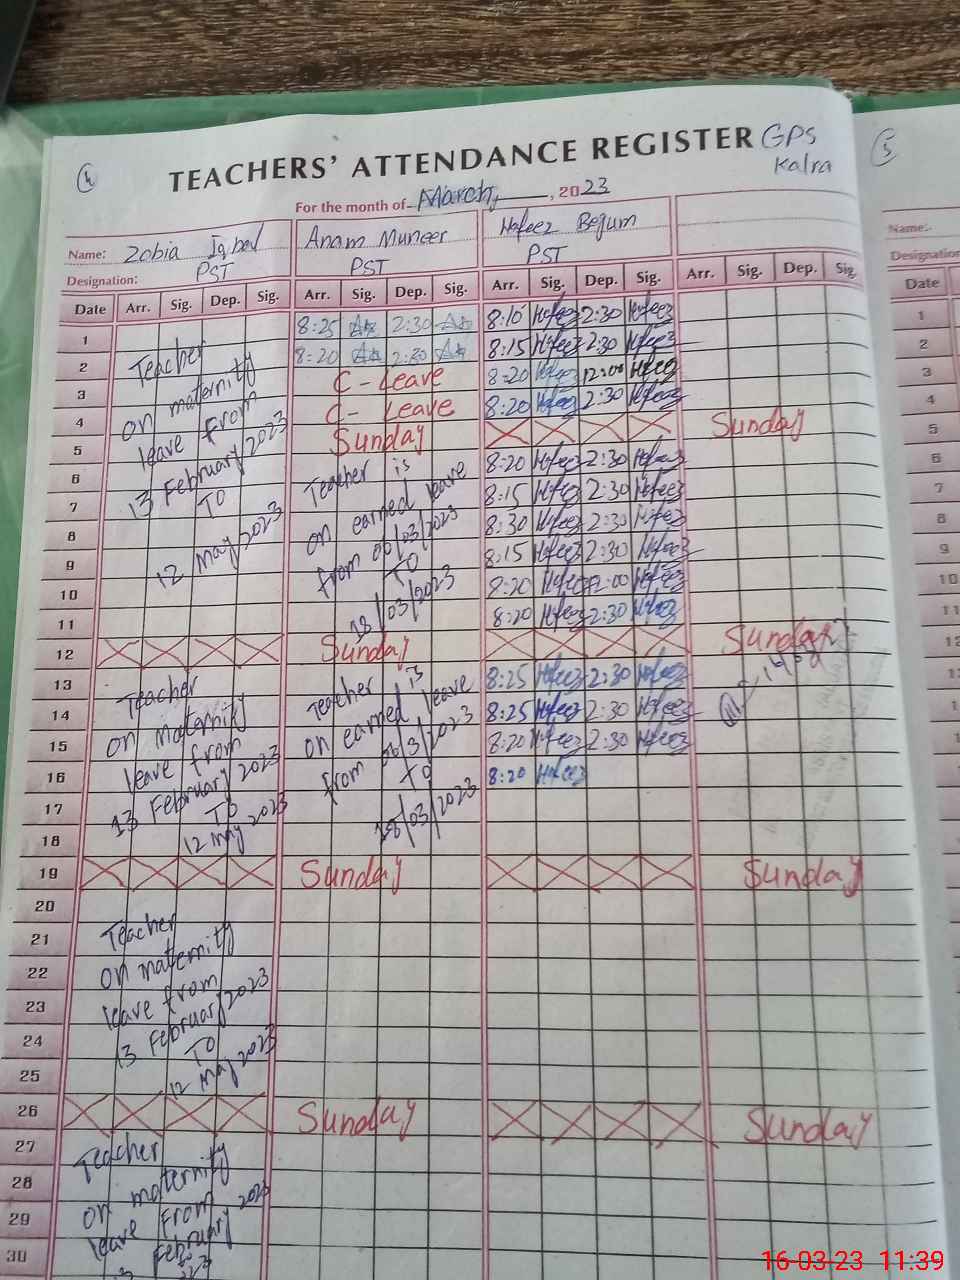 4
TEACHERS' ATTENDANCE REGISTER GPS
Kalra
5
For the month of March, 2023
Name: Zobia Iqbal Anam Muneer Hafeez Begum
Designation: PST PST PST
Date Arr. Sig. Dep. Sig. Arr. Sig. Dep. Sig. Arr. Sig. Dep. Sig. Arr. Sig. Dep. Sig.
1 8:25 2:30 8:10 Hafeez 2:30 Hafeez
2 Teacher 8:20 2:30 8:15 Hafeez 2:30 Hafeez
3 on maternity C-Leave 8:20 Hafeez 12:00 Hafeez
4 leave from C-Leave 8:20 Hafeez 2:30 Hafeez
5 13 February 2023 Sunday Sunday
6 TO Teacher is 8:20 Hafeez 2:30 Hafeez
7 12 May 2023 on earned leave 8:15 Hafeez 2:30 Hafeez
8 from 06/03/2023 8:30 Hafeez 2:30 Hafeez
9 TO 8:15 Hafeez 2:30 Hafeez
10 18/03/2023 8:20 Hafeez 12:00 Hafeez
11 8:20 Hafeez 2:30 Hafeez
12 Sunday Sunday
13 Teacher Teacher is 8:25 Hafeez 2:30 Hafeez
14 on maternity on earned leave 8:25 Hafeez 2:30 Hafeez
15 leave from from 06/3/2023 8:20 Hafeez 2:30 Hafeez
16 13 February 2023 To 8:20 Hafeez
17 TO 18/03/2023
18 12 May 2023
19 Sunday Sunday
20
21 Teacher
22 on maternity
23 leave from
24 13 February 2023
25 TO
12 May 2023
26 Sunday Sunday
27 Teacher
28 on maternity
29 leave from
30 February 2023
Name:-
Designation
Date
1
2
3
4
5
6
7
8
9
10
11
12
16-03-23 11:39